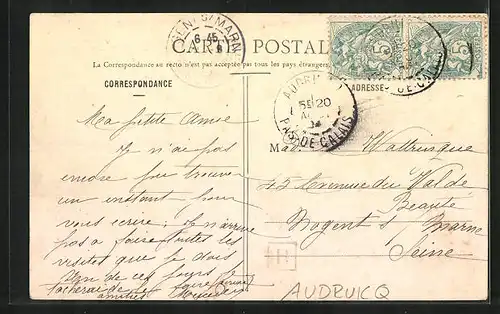 CARTE POSTALE
La Correspondance au recto n'est pas acceptée par tous les pays étrangers
CORRESPONDANCE
ADRESSE
S/MARN
6-45
5E 20
PAS-DE-CALAIS
DE-CALAIS
5
5
Ma petite Amie
Je n'ai pas
encore pu trouver
un instant pour
vous écrire, je n'arrive
pas à faire toutes les
visites que je dois
Un de ces jours je
tacherai de le faire
amitiés
Mad. Wattrinque
45 Avenue du Val de
Beauté
Nogent s/ Marne
Seine
H
AUDRUICQ